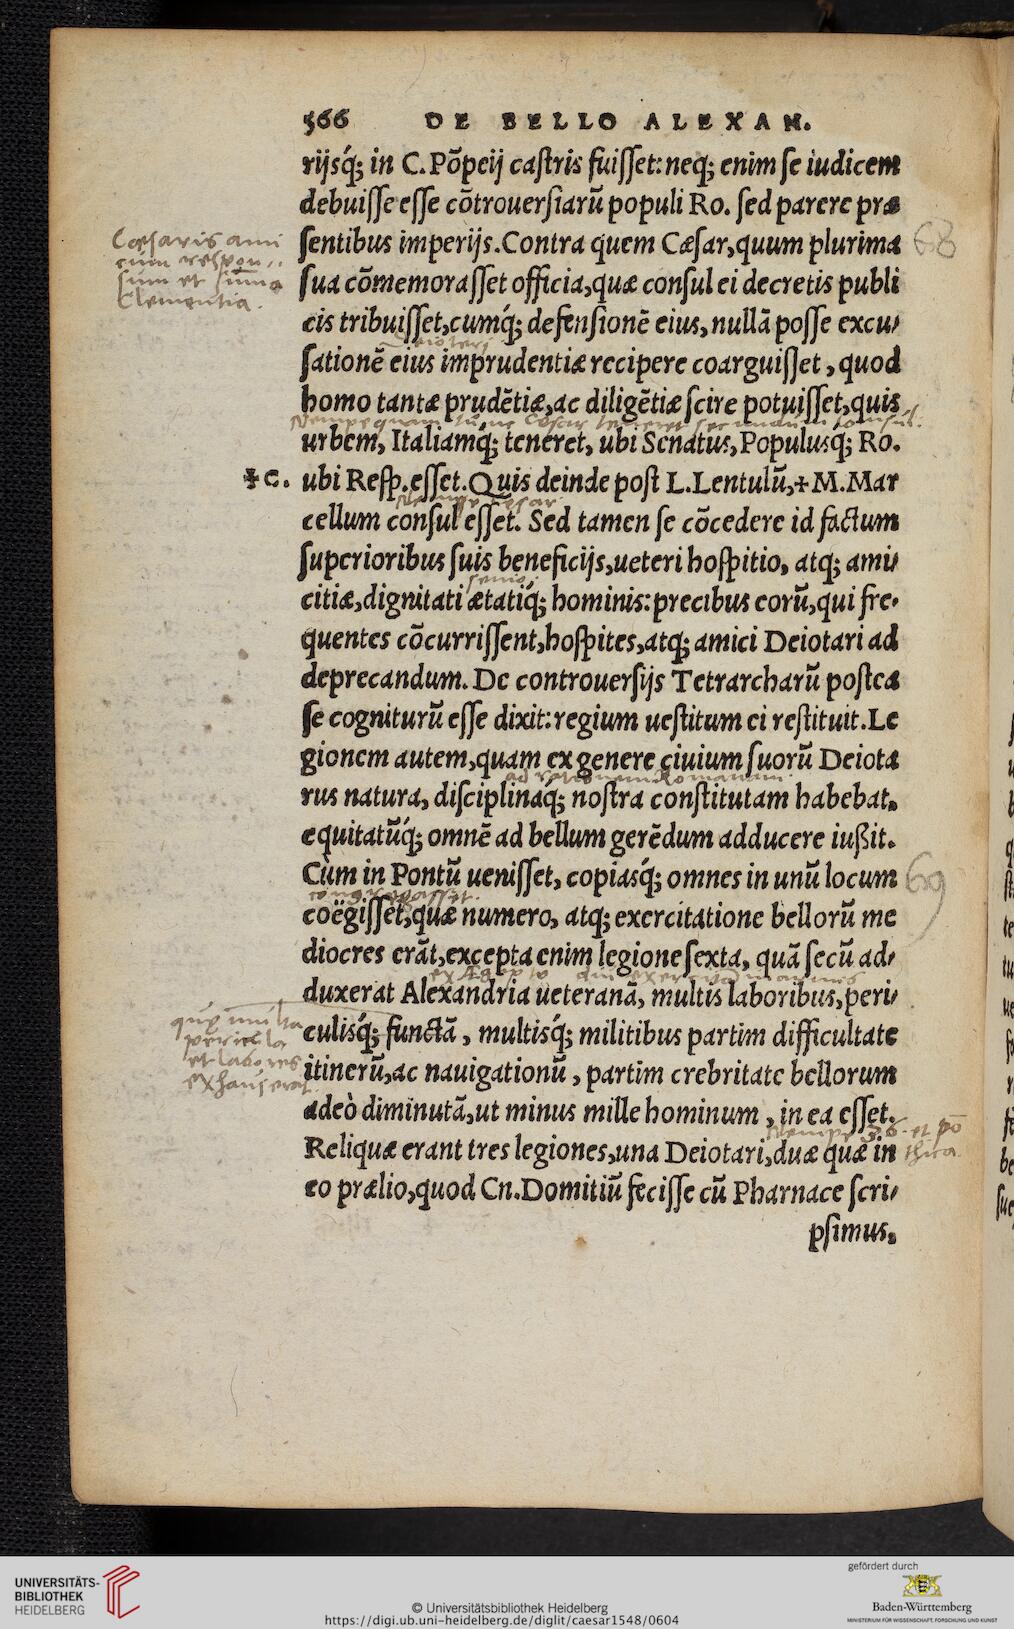 566 DE BELLO ALEXAN.
rijsq́; in C. Põpeij castris fuisset: neq; enim se iudicem
debuisse esse cõtrouersiarũ populi Ro. sed parere præ
sentibus imperijs. Contra quem Cæsar, quum plurima
68
Cæsaris ami
cum respon
sum et suma
Clementia.
sua cõmemorasset officia, quæ consul ei decretis publi
cis tribuisset, cumq́; defensionẽ eius, nullã posse excu-
Deiotari
sationẽ eius imprudentiæ recipere coarguisset, quod
homo tantæ prudẽtiæ, ac diligẽtiæ scire potuisset, quis
Nempe quam tunc Cæsar teneret secundum consul.
urbem, Italiamq́; teneret, ubi Senatus, Populusq; Ro.
‡C. ubi Resp. esset. Quis deinde post L. Lentulũ, ‡ M. Mar
Nempe Cesar
cellum consul esset. Sed tamen se cõcedere id factum
superioribus suis beneficijs, ueteri hospitio, atq; ami-
citiæ, dignitati ætatiq́; hominis: precibus eorũ, qui fre-
quentes cõcurrissent, hospites, atq; amici Deiotari ad
deprecandum. De controuersijs Tetrarcharũ postea
se cogniturũ esse dixit: regium uestitum ei restituit. Le
gionem autem, quam ex genere ciuium suorũ Deiota
ad rationem Romanam.
rus natura, disciplinaq́; nostra constitutam habebat.
equitatũq́; omnẽ ad bellum gerẽdum adducere iußit.
Cùm in Pontũ uenisset, copiasq́; omnes in unũ locum
69
congregasset.
coëgisset, quæ numero, atq; exercitatione bellorũ me
diocres erãt, excepta enim legione sexta, quã secũ ad-
ex Ægypto
duxerat Alexandria ueteranã, multis laboribus, peri-
quæ multa
pericula
et labores
exhauserat
culisq́; functã, multisq́; militibus partim difficultate
itinerũ, ac nauigationũ, partim crebritate bellorum
adeò diminutã, ut minus mille hominum, in ea esset.
Nempe 36. et põ
thica
Reliquæ erant tres legiones, una Deiotari, duæ quæ in
eo prælio, quod Cn. Domitiũ fecisse cũ Pharnace scri-
psimus.
UNIVERSITÄTS-
BIBLIOTHEK
HEIDELBERG
© Universitätsbibliothek Heidelberg
https://digi.ub.uni-heidelberg.de/diglit/caesar1548/0604
gefördert durch
Baden-Württemberg
MINISTERIUM FÜR WISSENSCHAFT, FORSCHUNG UND KUNST